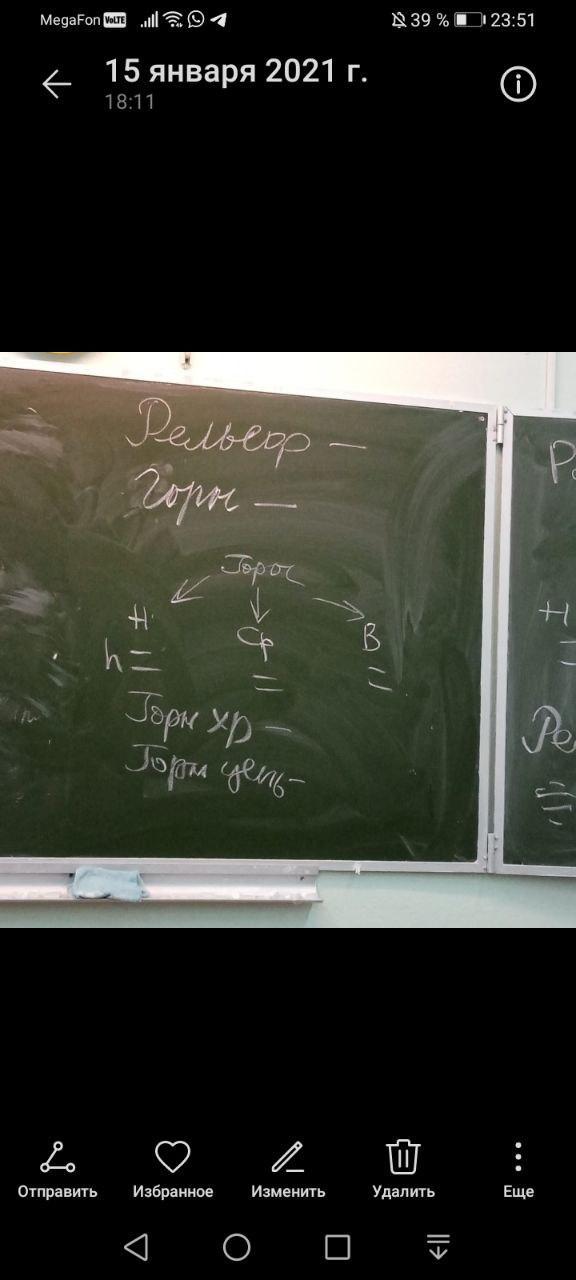 MegaFon VoLTE 39 % 23:51
15 января 2021 г.
18:11
Рельеф —
Горы —
Горы
Н Ср В
h = = =
Горн хр —
Горн цепь —
Н
Отправить Избранное Изменить Удалить Еще